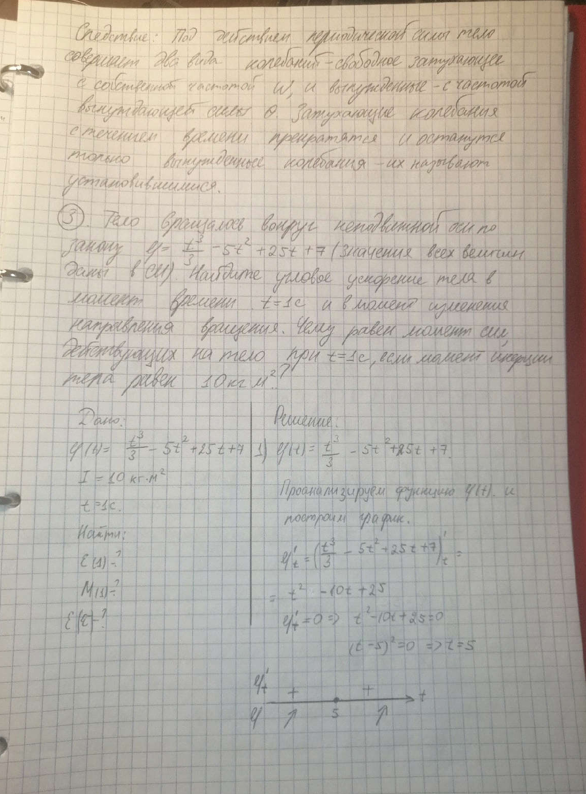 Следствие: Под действием периодической силы тело
совершает два вида колебаний - свободное затухающее
с собственной частотой ω, и вынужденные - с частотой
вынуждающей силы θ. Затухающие колебания
с течением времени прекратятся и останутся
только вынужденные колебания - их называют
установившимися.
③. Тело вращалось вокруг неподвижной оси по
закону φ = t³/3 - 5t² + 25t + 7 (значения всех величин
даны в СИ). Найдите угловое ускорение тела в
момент времени t=1с и в момент изменения
направления вращения. Чему равен момент сил,
действующих на тело при t=1с, если момент инерции
тела равен 10 кг м²?
Дано:
φ(t) = t³/3 - 5t² + 25t + 7
I = 10 кг·м²
t = 1с.
Найти:
ε(1) - ?
M(1) - ?
ε(t) - ?
Решение:
1) φ(t) = t³/3 - 5t² + 25t + 7.
Проанализируем функцию φ(t) и
построим график.
φ't = (t³/3 - 5t² + 25t + 7)'t =
= t² - 10t + 25
φ't = 0 => t² - 10t + 25 = 0
(t - 5)² = 0 => t = 5
φ't + + t
φ ↑ 5 ↑